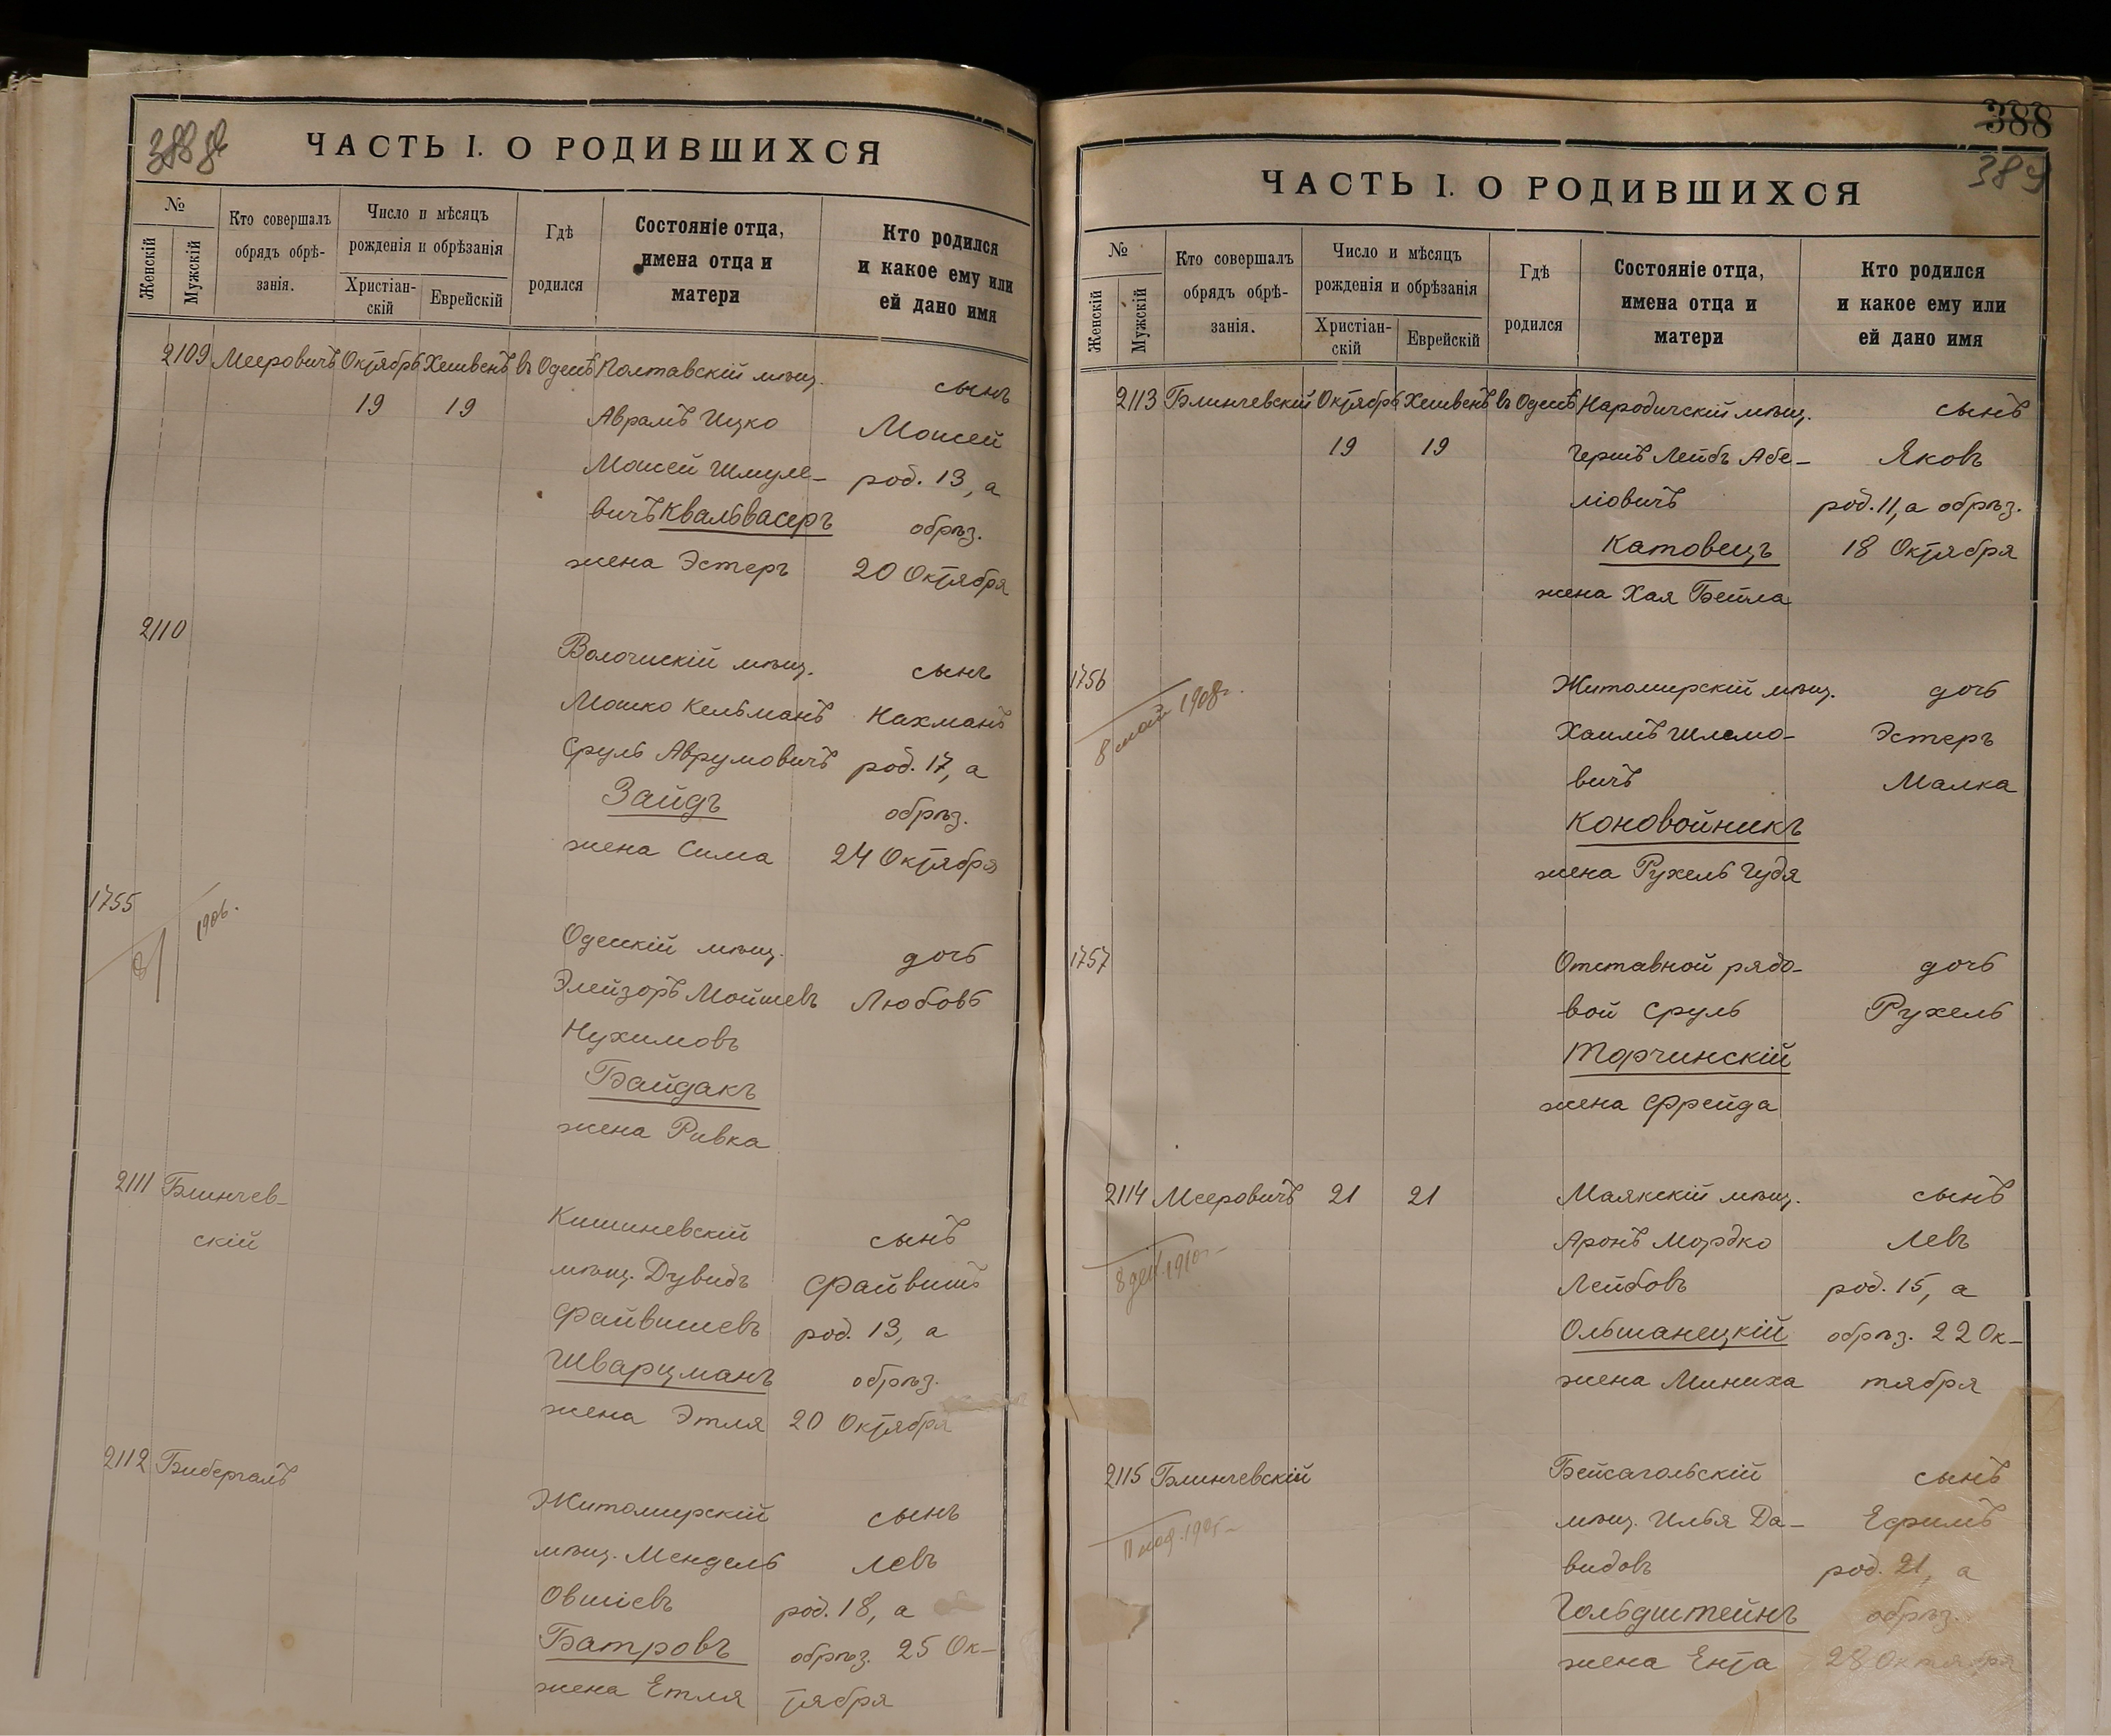 ЧАСТЬ I. О РОДИВШИХСЯ
№
Женскій
Мужскій
Кто совершалъ
обрядъ обрѣ-
занія.
Число и мѣсяцъ
рожденія и обрѣзанія
Христіан-
скій
Еврейскій
Гдѣ
родился
Состояніе отца,
имена отца и
матери
Кто родился
и какое ему или
ей дано имя
2109 Мееровичъ Октябрь Хешвенъ въ Одессѣ Полтавскій мѣщ. сынъ
19 19 Аврамъ Ицко Моисей
Моисей Шмуле- род. 13, а
вичъ Квальвасеръ обрѣз.
жена Эстеръ 20 Октября
2110 Волочискій мѣщ. сынъ
Мошко Кельманъ Нахманъ
Сруль Аврумовичъ род. 17, а
Зайдъ обрѣз.
жена Сима 24 Октября
1755
1906.
Одесскій мѣщ. дочь
Элейзоръ Мойшевъ Любовь
Нухимовъ
Байдакъ
жена Ривка
2111 Блинчев-
скій
Кишиневскій сынъ
мѣщ. Дувидъ Файвишъ
Файвишевъ род. 13, а
Шварцманъ обрѣз.
жена Этля 20 Октября
2112 Бибергалъ
Житомирскій сынъ
мѣщ. Мендель Левъ
Овшіевъ род. 18, а
Батровъ обрѣз. 25 Ок-
жена Етля тября
388
389
ЧАСТЬ I. О РОДИВШИХСЯ
№
Женскій
Мужскій
Кто совершалъ
обрядъ обрѣ-
занія.
Число и мѣсяцъ
рожденія и обрѣзанія
Христіан-
скій
Еврейскій
Гдѣ
родился
Состояніе отца,
имена отца и
матери
Кто родился
и какое ему или
ей дано имя
2113 Блинчевскій Октябрь Хешвенъ въ Одессѣ Народичскій мѣщ. сынъ
19 19 Гершъ Лейбъ Абе- Яковъ
ліовичъ род. 11, а обрѣз.
Катовецъ 18 Октября
жена Хая Бейла
1756 Житомирскій мѣщ. дочь
8 май 1908г.
Хаимъ Шлемо- Эстеръ
вичъ Малка
Коновойникъ
жена Рухель Гудя
1757 Отставной рядо- дочь
вой Сруль Рухель
Торчинскій
жена Фрейда
2114 Мееровичъ 21 21 Маякскій мѣщ. сынъ
8 дек. 1910
Аронъ Мордко Левъ
Лейбовъ род. 15, а
Ольшанецкій обрѣз. 22 Ок-
жена Миниха тября
2115 Блинчевскій Бейсагольскій сынъ
мѣщ. Илья Да- Ефримъ
видовъ род. 21, а
Гольдштейнъ обрѣз.
жена Ента 28 Октября